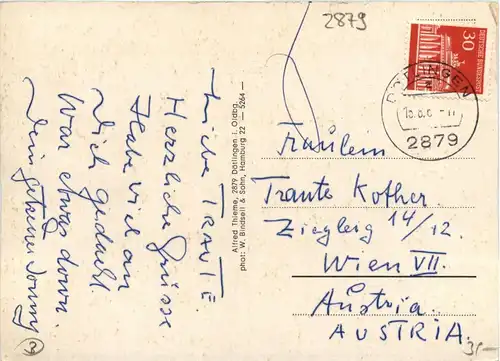 2879
30
DEUTSCHE BUNDESPOST
DÖTLINGEN
2879
Liebe TRAUTE.
Herzliche Grüsse
Habe viel an
Dich gedacht.
War etwas down.
Dein getreuer
Alfred Thieme, 2879 Dötlingen i. Oldbg.
phot: W. Bindseil & Sohn, Hamburg 22 — 5264 —
Fräulein
Traute Kother.
Zieglerg 14/12.
Wien VII.
Austria
AUSTRIA.